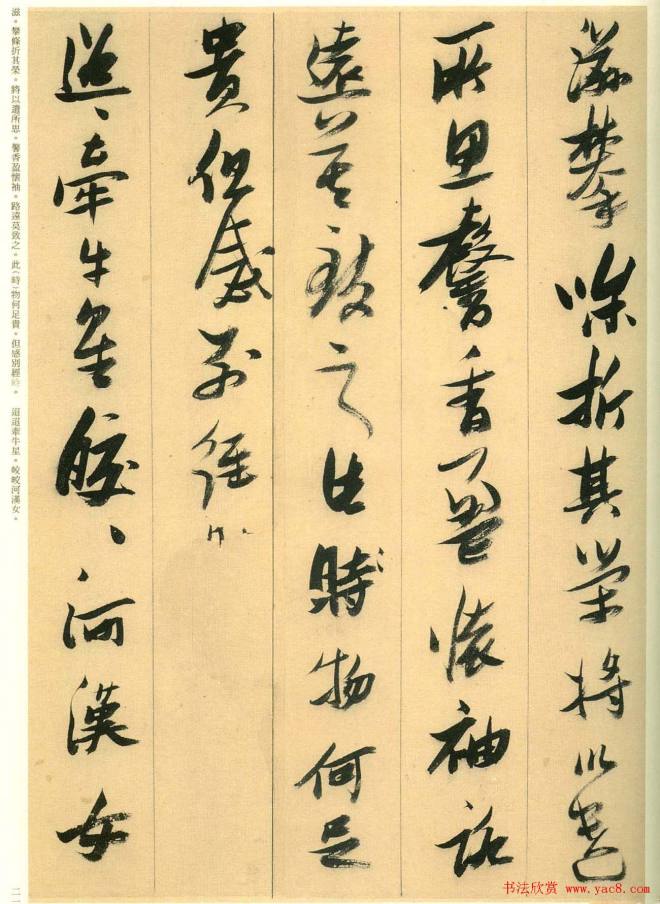 滋攀條折其榮將以遺
所思馨香盈懷袖路
遠莫致之此時物何足
貴但感別經時
迢〻牽牛星皎〻河漢女
滋。攀條折其榮。將以遺所思。馨香盈懷袖。路遠莫致之。此(時)物何足貴。但感別經時。 迢迢牽牛星。皎皎河漢女。
二一
书法欣赏 www.yac8.com